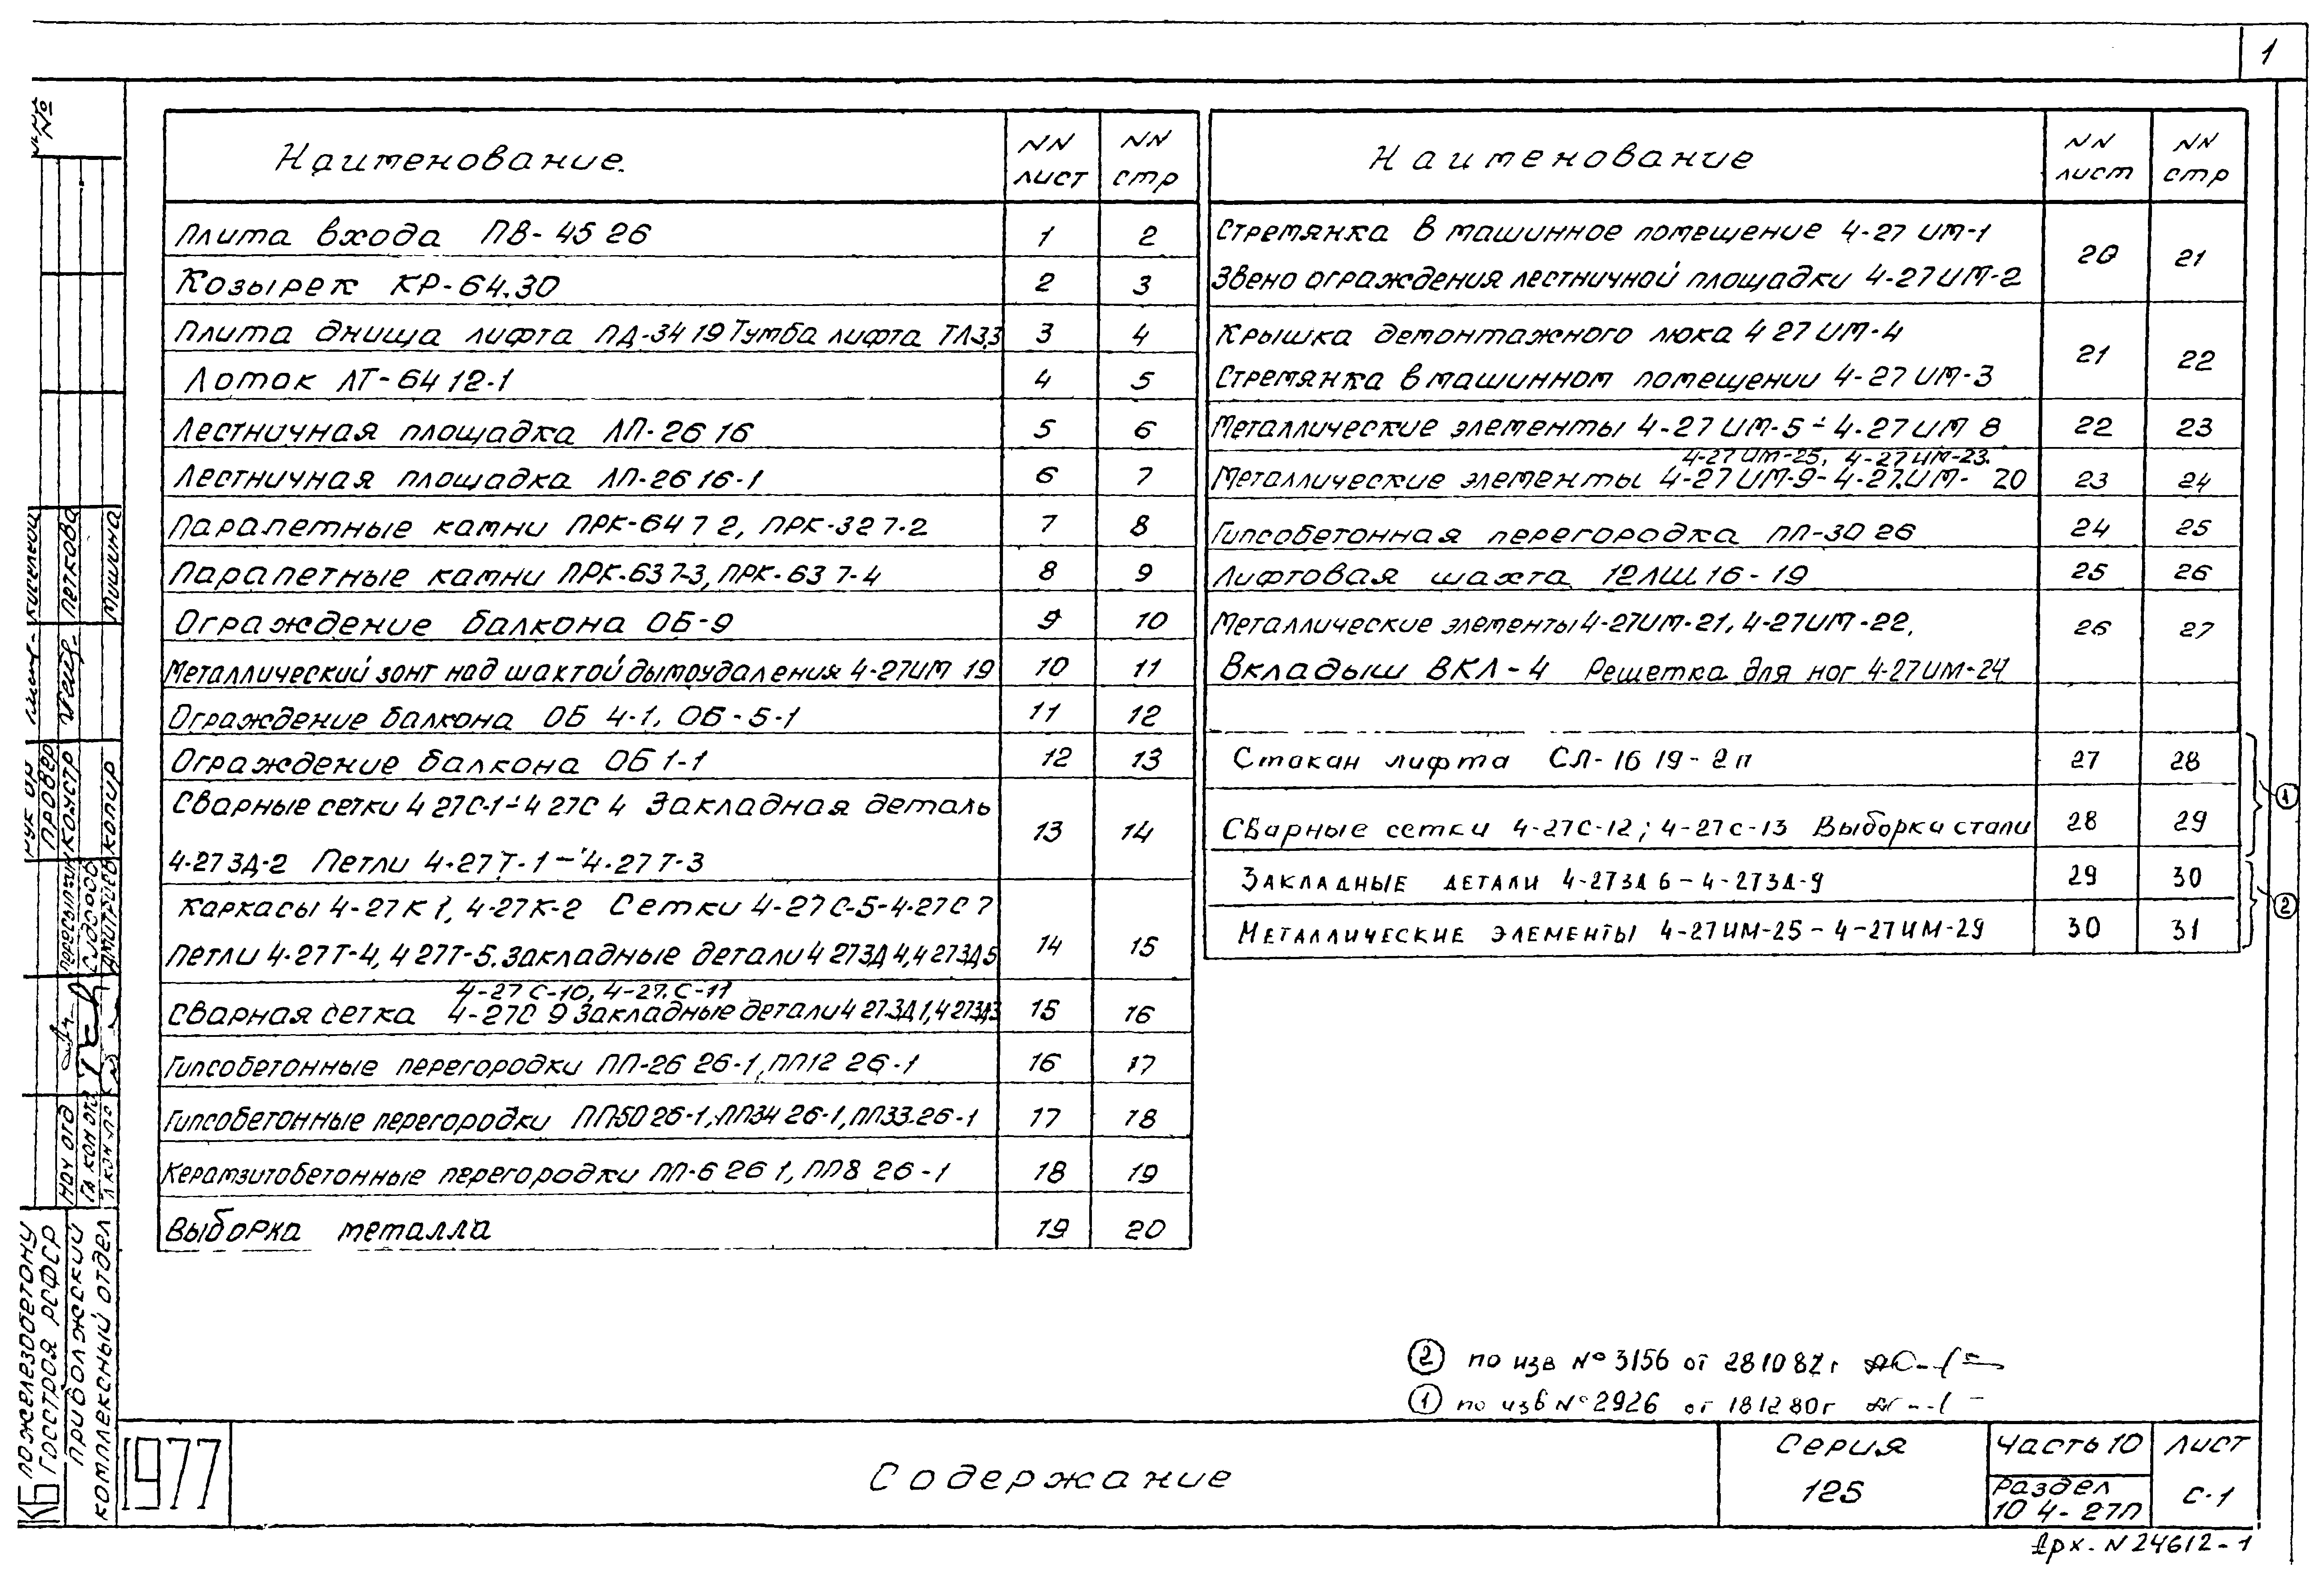 1
Наименование.
NN лист
NN стр
Плита входа ПВ-45 26 1 2
Козырек КР-64.30 2 3
Плита днища лифта ПД-34 19 Тумба лифта ТЛ3.3 3 4
Лоток ЛТ-64 12-1 4 5
Лестничная площадка ЛП-26 16 5 6
Лестничная площадка ЛП-26 16-1 6 7
Парапетные камни ПРК-64 7 2, ПРК-32 7-2 7 8
Парапетные камни ПРК-63 7-3, ПРК-63 7-4 8 9
Ограждение балкона ОБ-9 9 10
Металлический зонт над шахтой дымоудаления 4-27ИМ 19 10 11
Ограждение балкона ОБ 4-1, ОБ-5-1 11 12
Ограждение балкона ОБ 1-1 12 13
Сварные сетки 4 27С-1-4 27С 4 Закладная деталь
4-27ЗД-2 Петли 4-27Т-1-4-27Т-3 13 14
Каркасы 4-27К1, 4-27К-2 Сетки 4-27С-5-4-27С 7
Петли 4-27Т-4, 4 27Т-5. Закладные детали 4 27ЗД 4, 4 27ЗД 5 14 15
4-27 С-10, 4-27. С-11
Сварная сетка 4-27С 9 Закладные детали 4 27.ЗД 1, 4 27ЗД3 15 16
Гипсобетонные перегородки ПП-26 26-1, ПП12 26-1 16 17
Гипсобетонные перегородки ПП50 26-1, ПП34 26-1, ПП33.26-1 17 18
Керамзитобетонные перегородки ПП-6 26 1, ПП8 26-1 18 19
Выборка металла 19 20
Наименование
NN лист
NN стр
Стремянка в машинное помещение 4-27 ИМ-1
Звено ограждения лестничной площадки 4-27ИМ-2 20 21
Крышка демонтажного люка 4 27ИМ-4
Стремянка в машинном помещении 4-27 ИМ-3 21 22
Металлические элементы 4-27ИМ-5-4-27ИМ 8 22 23
4-27ИМ-25, 4-27ИМ-23.
Металлические элементы 4-27ИМ-9-4-27.ИМ- 20 23 24
Гипсобетонная перегородка ПП-30 26 24 25
Лифтовая шахта 12ЛШ 16-19 25 26
Металлические элементы 4-27ИМ-21, 4-27ИМ-22, 26 27
Вкладыш ВКЛ-4 Решетка для ног 4-27ИМ-24
Стакан лифта СЛ-16 19-2п 27 28
Сварные сетки 4-27С-12; 4-27с-13 Выборки стали 28 29
1
Закладные детали 4-27ЗД 6-4-27ЗД-9 29 30
Металлические элементы 4-27ИМ-25-4-27ИМ-29 30 31
2
2 по изв №3156 от 281082г
1 по изв №2926 от 181280г
1977
Содержание
Серия
125
Часть 10
Раздел
10 4-27П
Лист
С-1
Арх. N24612-1
КБ по железобетону
Госстроя РСФСР
Приволжский
комплексный отдел
нач отд
провер
констр
Петкова
копир
Мишина